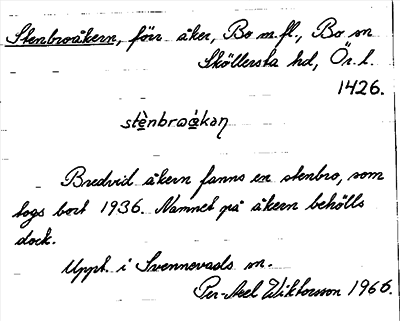 Stenbroåkern, förr åker, Bo m.fl., Bo sn
Sköllersta hd, Ör. l.
1426.
stènbroåkən
Bredvid åkern fanns en stenbro, som
togs bort 1936. Namnet på åkern behölls
dock.
Uppt. i Svennevads sn.
Per-Axel Wiktorsson 1966.